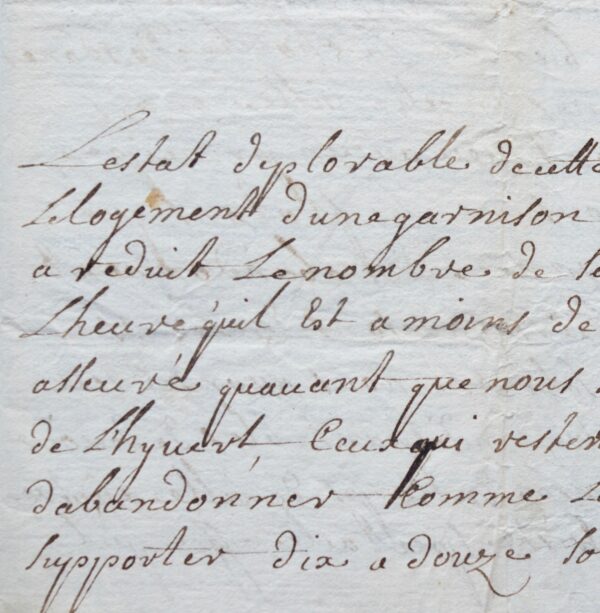 Lestat deplorable de cette
Le logement dune garnison
a reduit Le nombre de
Lheure quil Est a moins de
asseuré quauant que nous
de Lhyuert, Ceux qui resten
dabandonner Comme
supporter dix a douze so